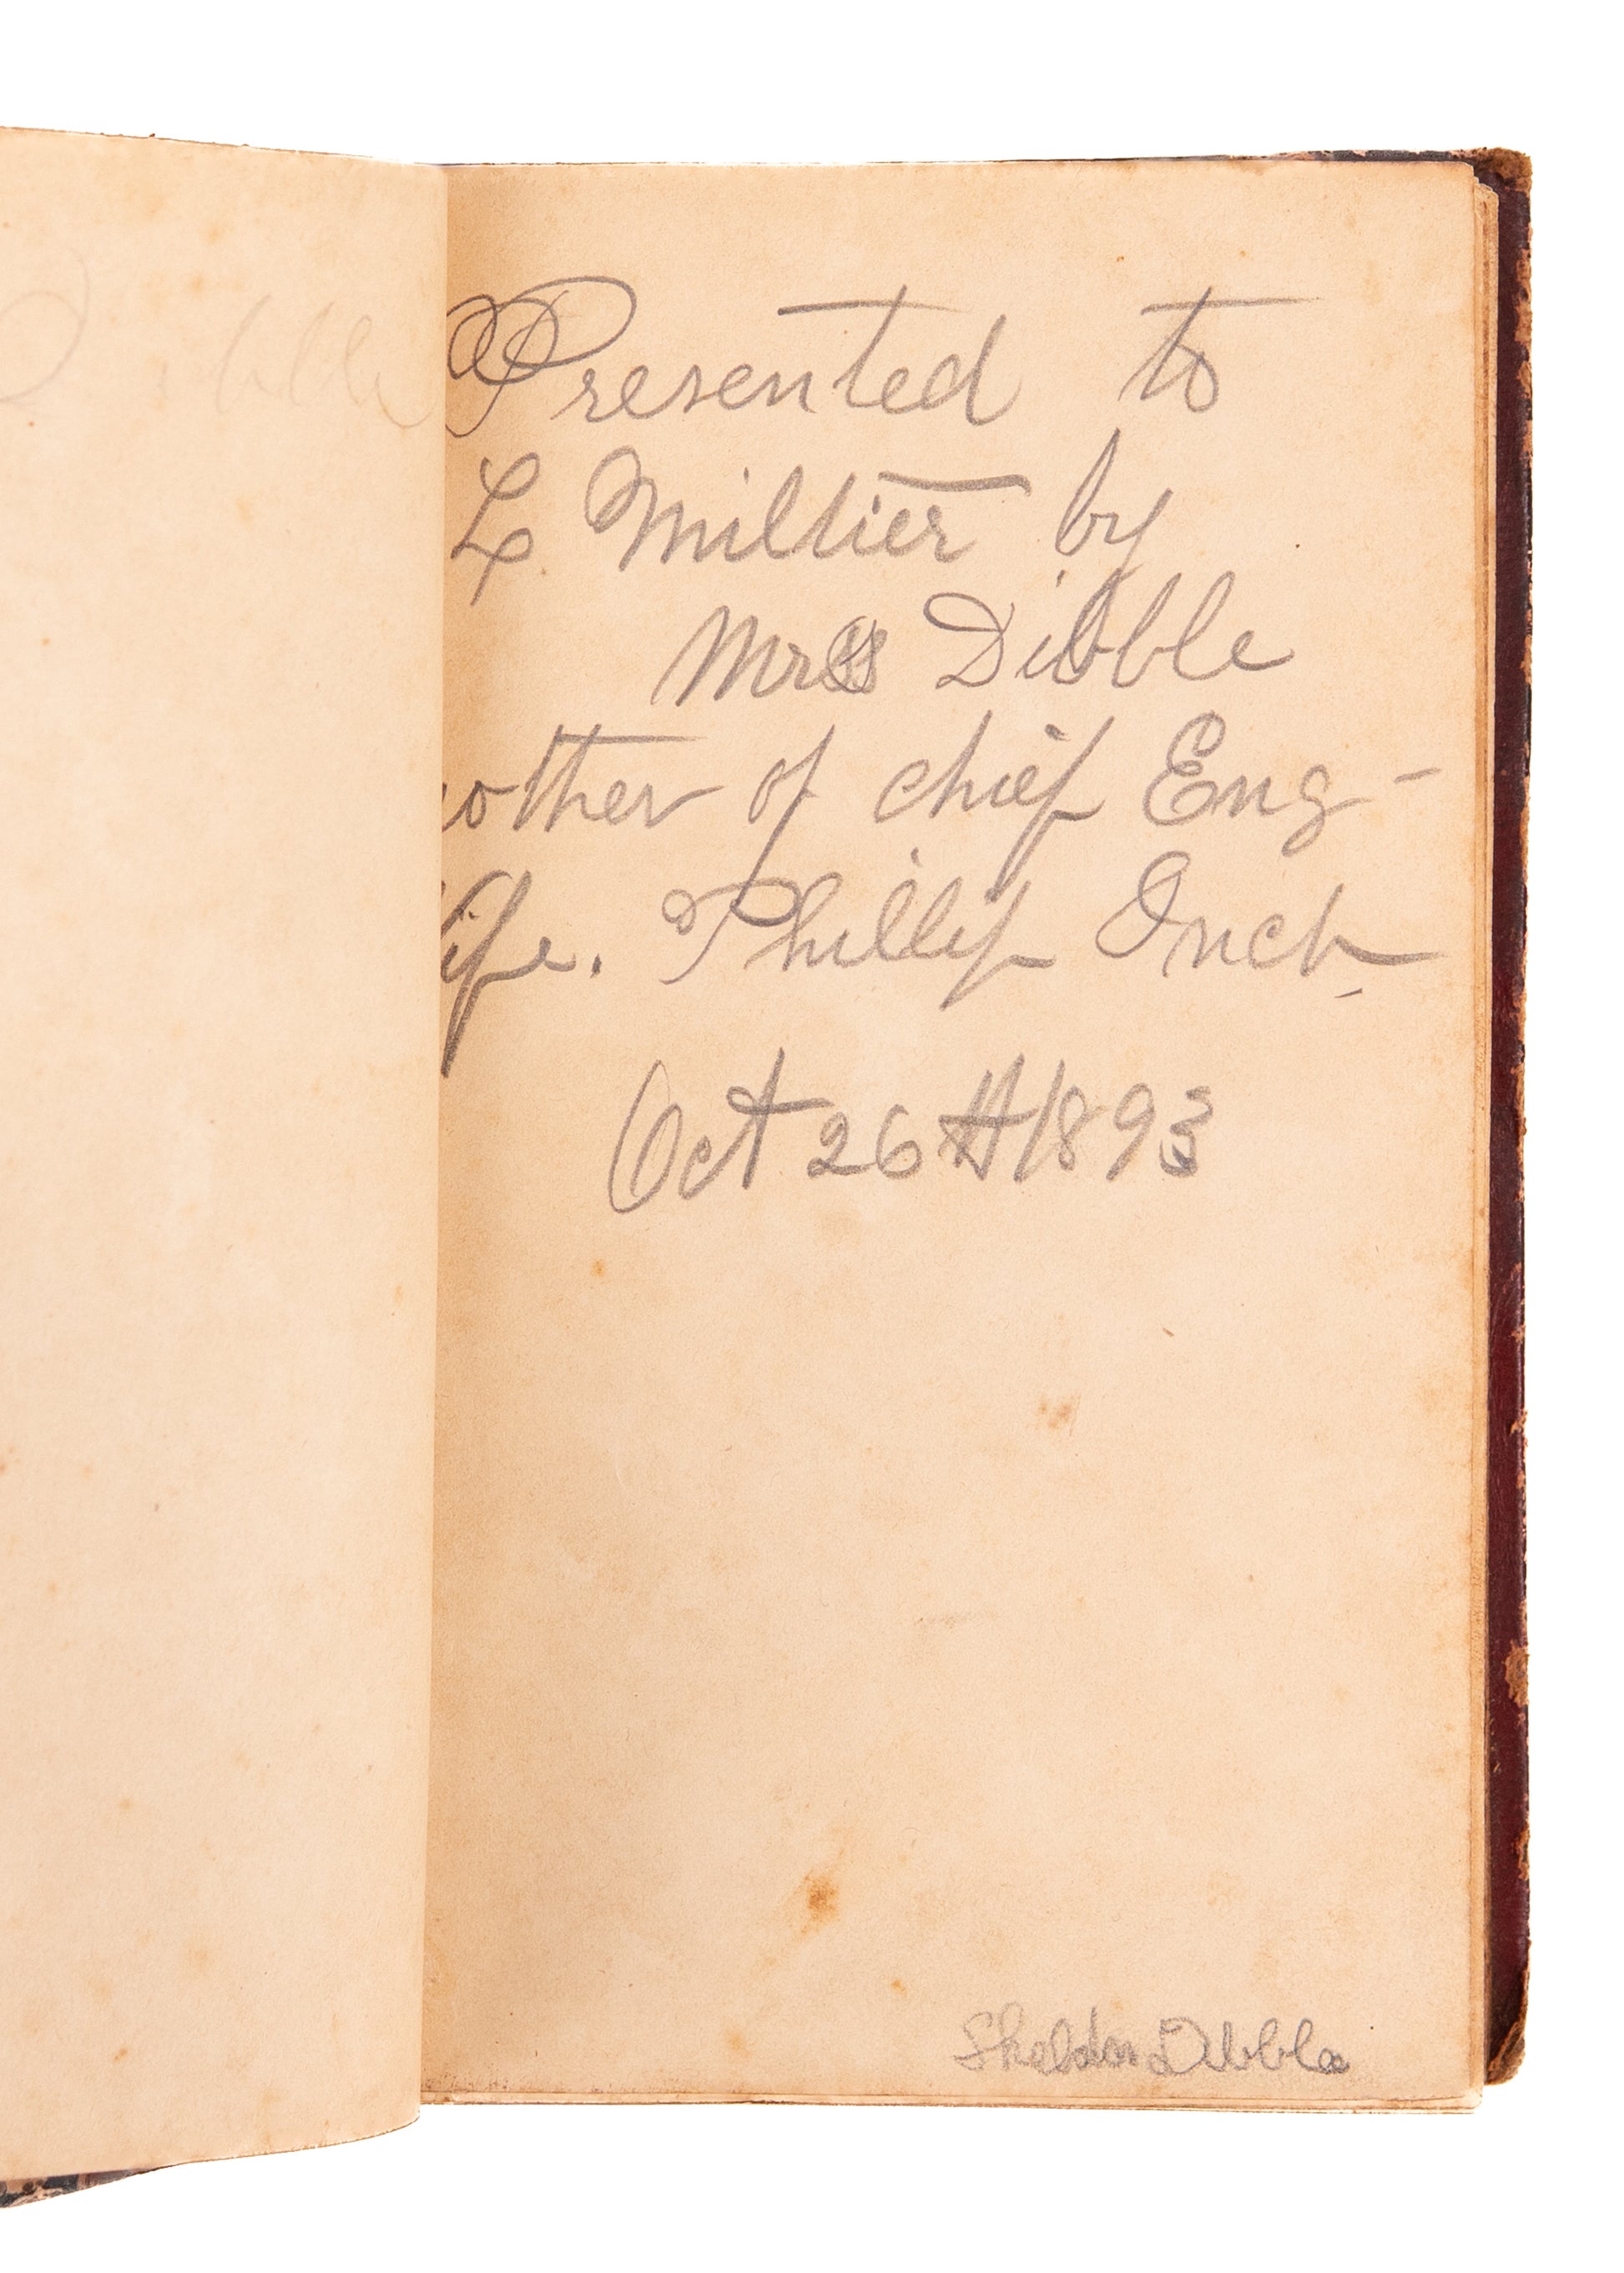 Presented to
L Miltier by
Mrs Dibble
other of chief Eng-
ife. Phillip Inch
Oct 26th 1893
Sheldon Dibble